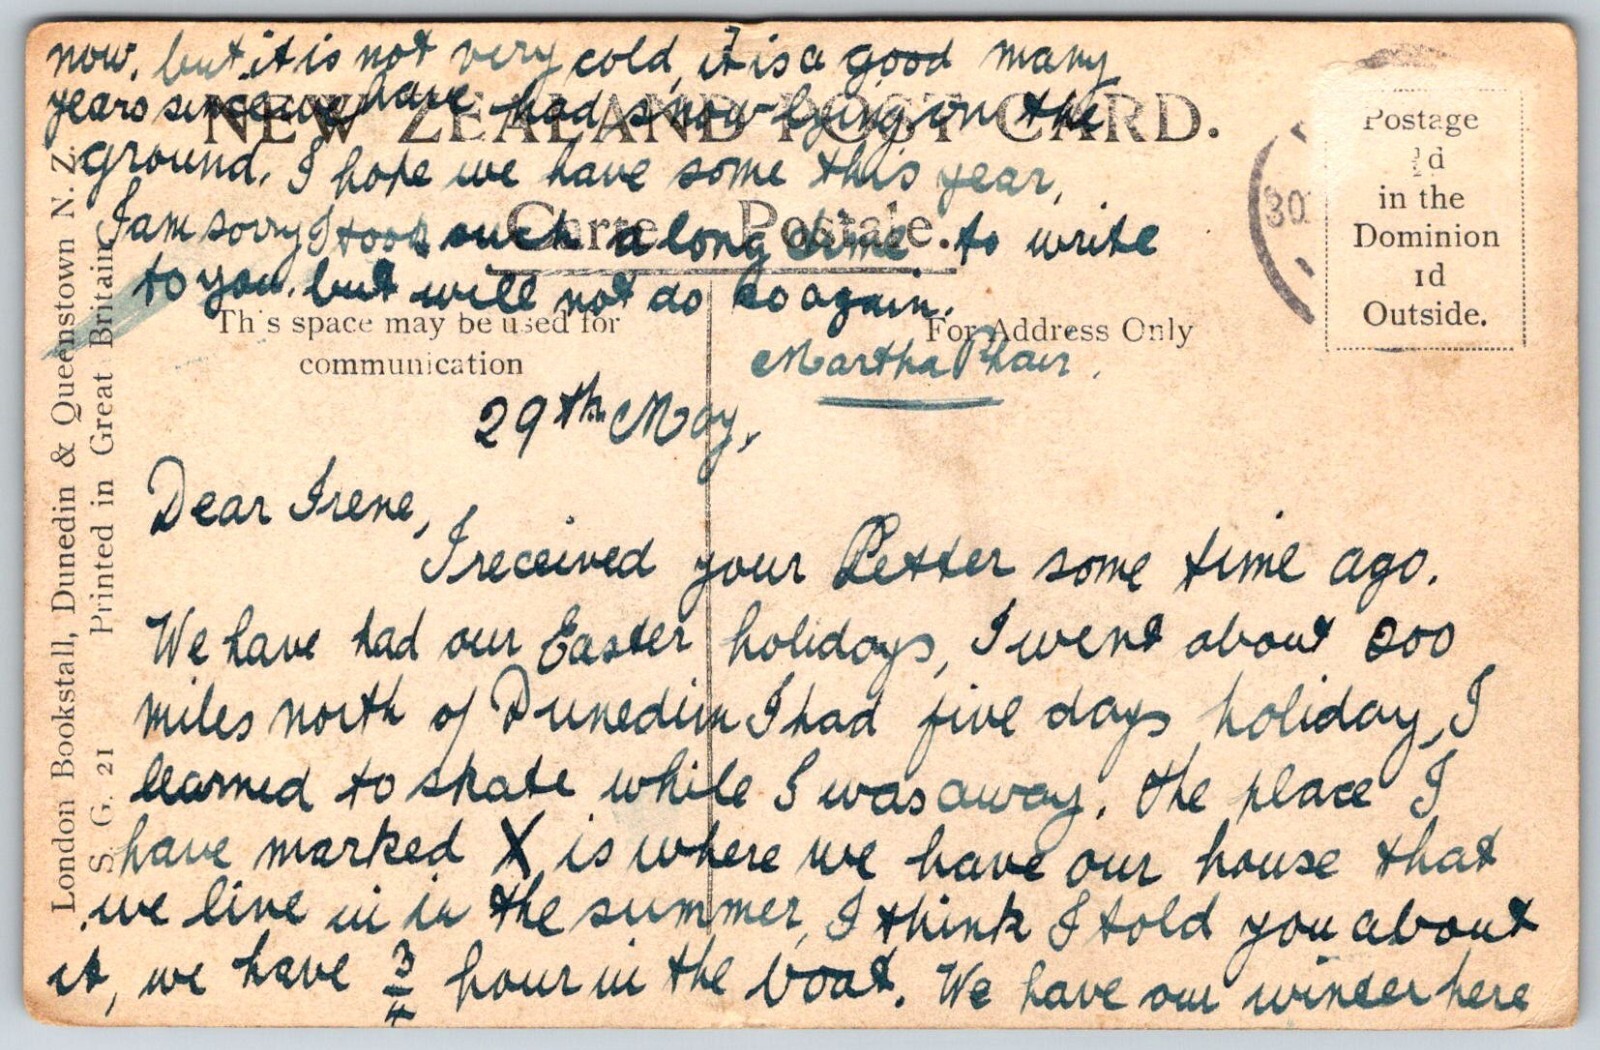 now, but it is not very cold, it is a good many
years since we have had snow lying on the
ground. I hope we have some this year,
I am sorry I took such a long time to write
to you. but will not do so again.
Martha Phair.
NEW ZEALAND POST CARD.
Carte Postale.
This space may be used for
communication
For Address Only
Postage
½d
in the
Dominion
1d
Outside.
30
London Bookstall, Dunedin & Queenstown N. Z.
S. G. 21 Printed in Great Britain
29th May,
Dear Irene,
I received your Letter some time ago.
We have had our Easter holidays, I went about 200
miles north of Dunedin I had five days holiday, I
learned to skate while I was away. The place I
have marked X is where we have our house that
we live in in the summer, I think I told you about
it, we have 3/4 hour in the boat. We have our winter here